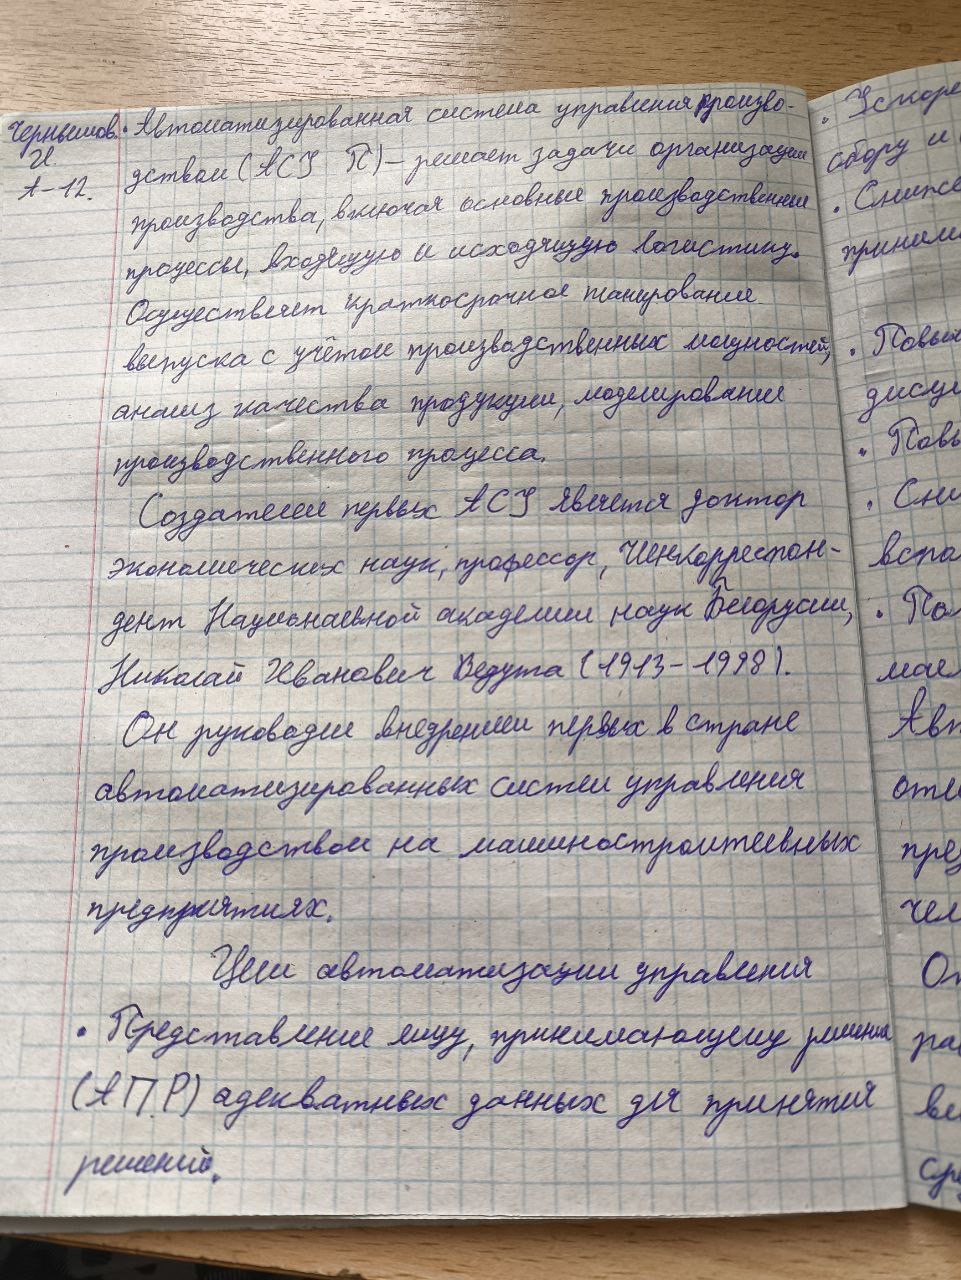 Чернышов.
И
А-12.
• Автоматизированная система управления произво-
дством (АСУ П) – решает задачи организации
производства, включая основные производственные
процессы, входящую и исходящую логистику.
Осуществляет краткосрочное планирование
выпуска с учётом производственных мощностей,
анализ качества продукции, моделирование
производственного процесса.
Создателем первых АСУ является доктор
экономических наук, профессор, Член-корреспон-
дент Национальной академии наук Белоруссии,
Николай Иванович Ведута (1913 – 1998).
Он руководил внедрением первых в стране
автоматизированных систем управления
производством на машиностроительных
предприятиях.
Цели автоматизации управления
• Представление лицу, принимающему решения
(АПР) адекватных данных для принятия
решений.
• Ускоре
сбору и
• Сниже
приним
• Повыш
дисци
• Повы
• Сни
вспо
• По
мае
Авт
отм
пред
чел
От
ра
ве
сре